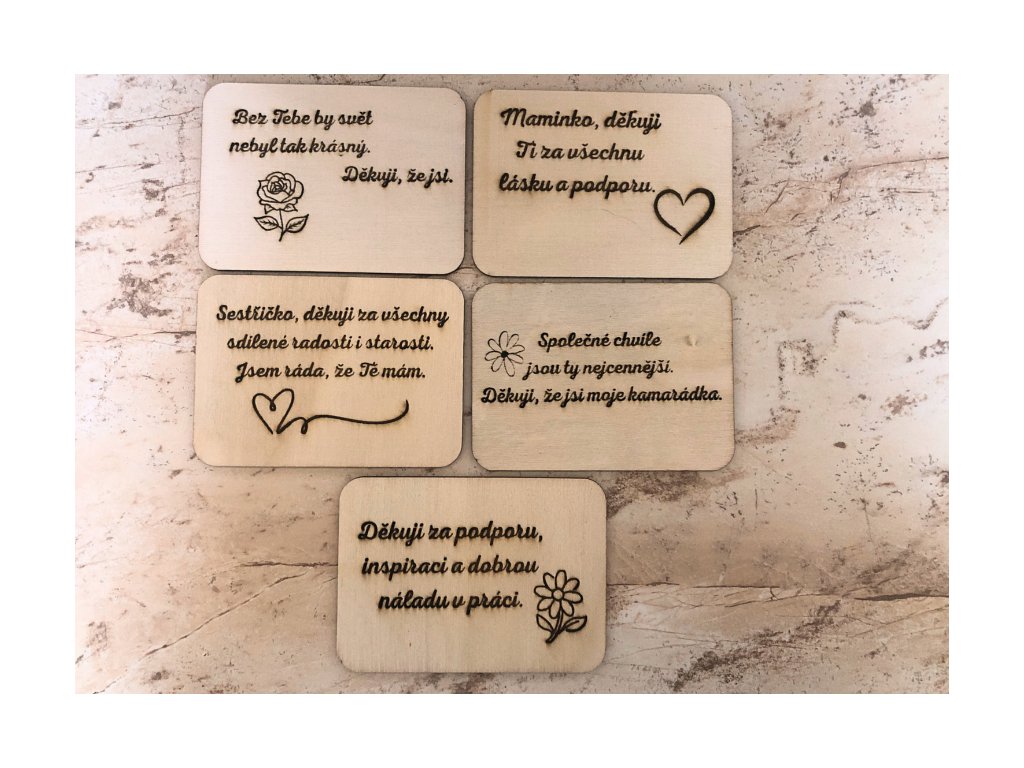 Bez Tebe by svět
nebyl tak krásný.
Děkuji, že jsi.
Maminko, děkuji
Ti za všechnu
lásku a podporu.
Sestřičko, děkuji za všechny
sdílené radosti i starosti.
Jsem ráda, že Tě mám.
Společné chvíle
jsou ty nejcennější.
Děkuji, že jsi moje kamarádka.
Děkuji za podporu,
inspiraci a dobrou
náladu v práci.